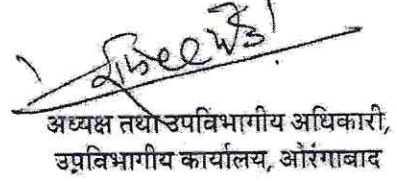 अध्यक्ष तथा उपविभागीय अधिकारी,
उपविभागीय कार्यालय, औरंगाबाद